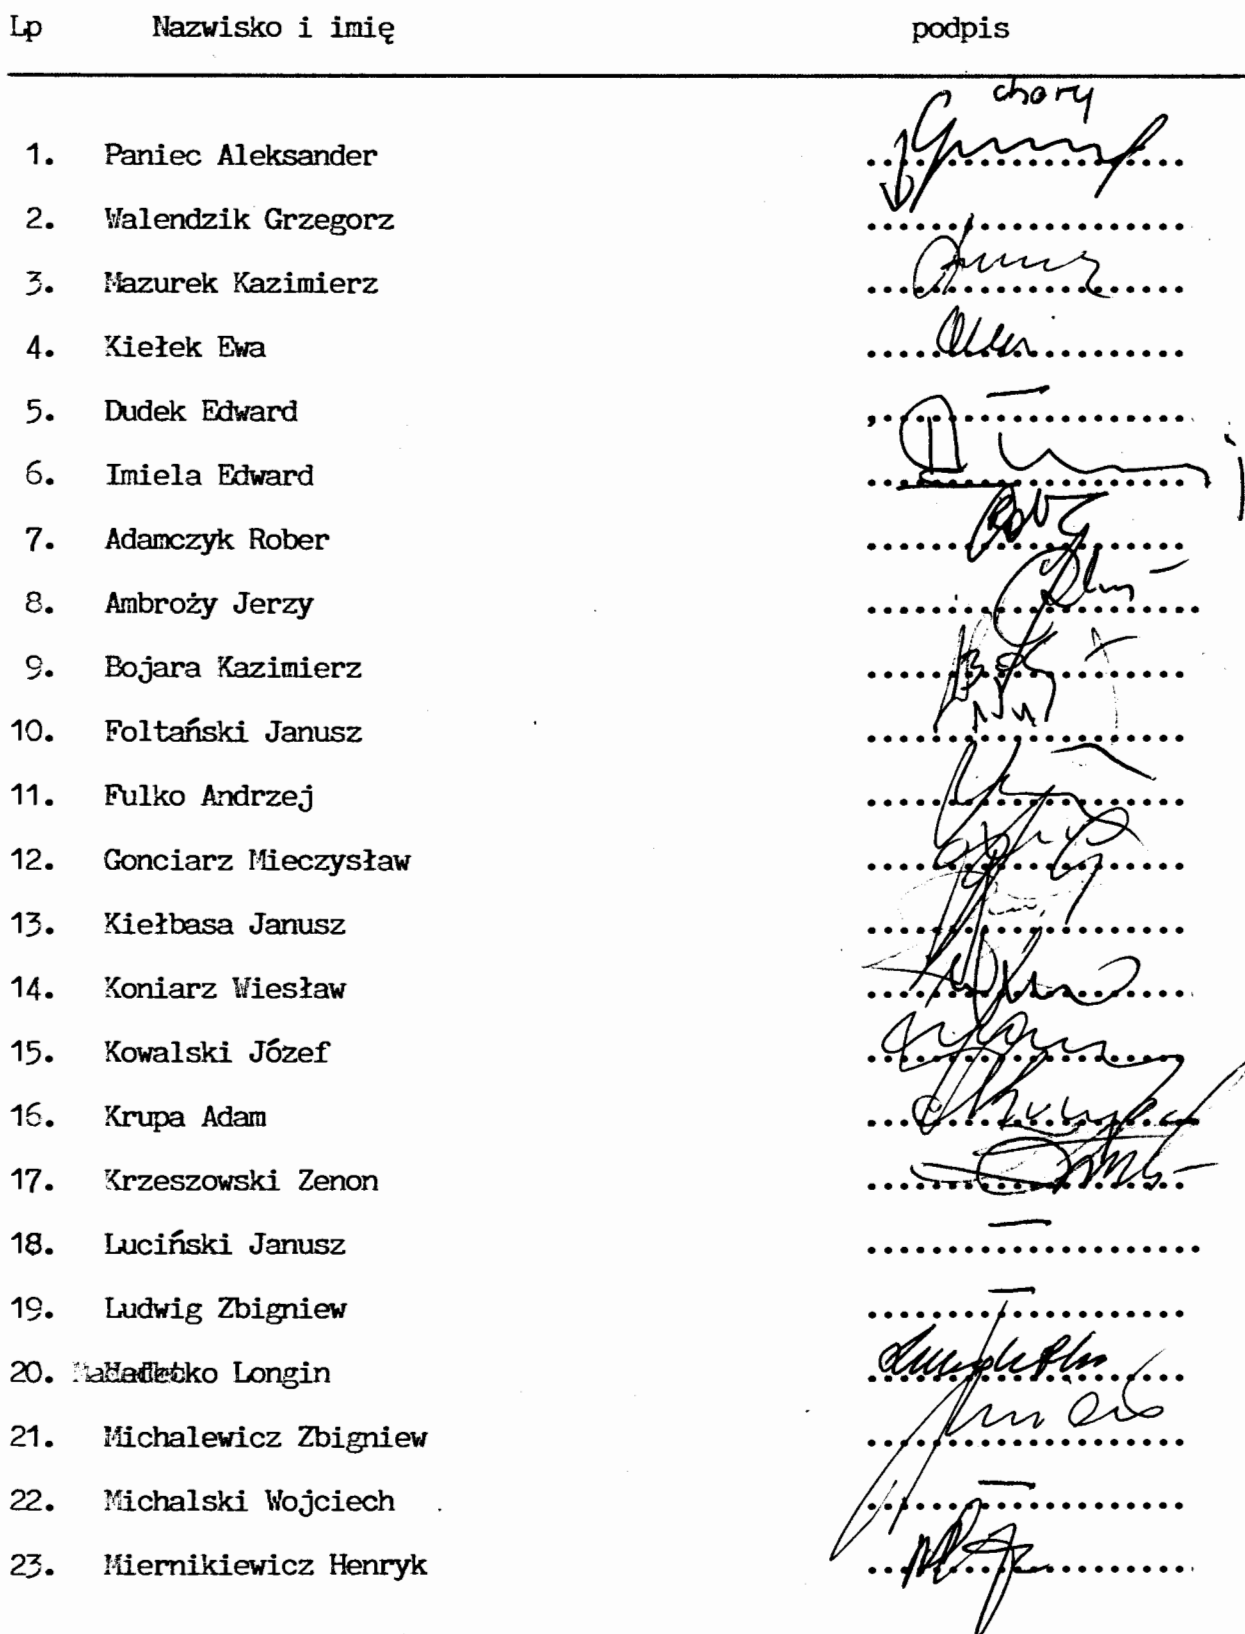 Lp Nazwisko i imię podpis
chory
1. Paniec Aleksander
2. Walendzik Grzegorz
3. Mazurek Kazimierz
4. Kiełek Ewa
5. Dudek Edward
6. Imiela Edward
7. Adamczyk Rober
8. Ambroży Jerzy
9. Bojara Kazimierz
10. Foltański Janusz
11. Fulko Andrzej
12. Gonciarz Mieczysław
13. Kiełbasa Janusz
14. Koniarz Wiesław
15. Kowalski Józef
16. Krupa Adam
17. Krzeszowski Zenon
18. Luciński Janusz
19. Ludwig Zbigniew
20. Longin
21. Michalewicz Zbigniew
22. Michalski Wojciech
23. Miernikiewicz Henryk